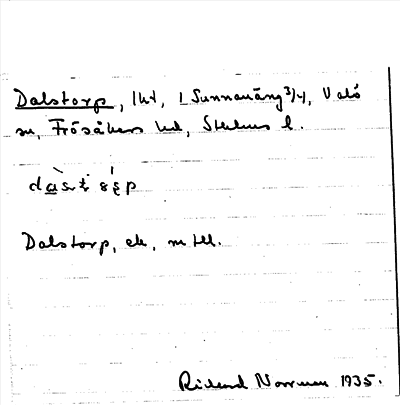 Dalstorp, lht, 1 Sunnanäng 3/4, Valö
sn, Frösåkers hd, Sthlms l.
Dalstorp, ek, m tll.
Rickard Norrman 1935.